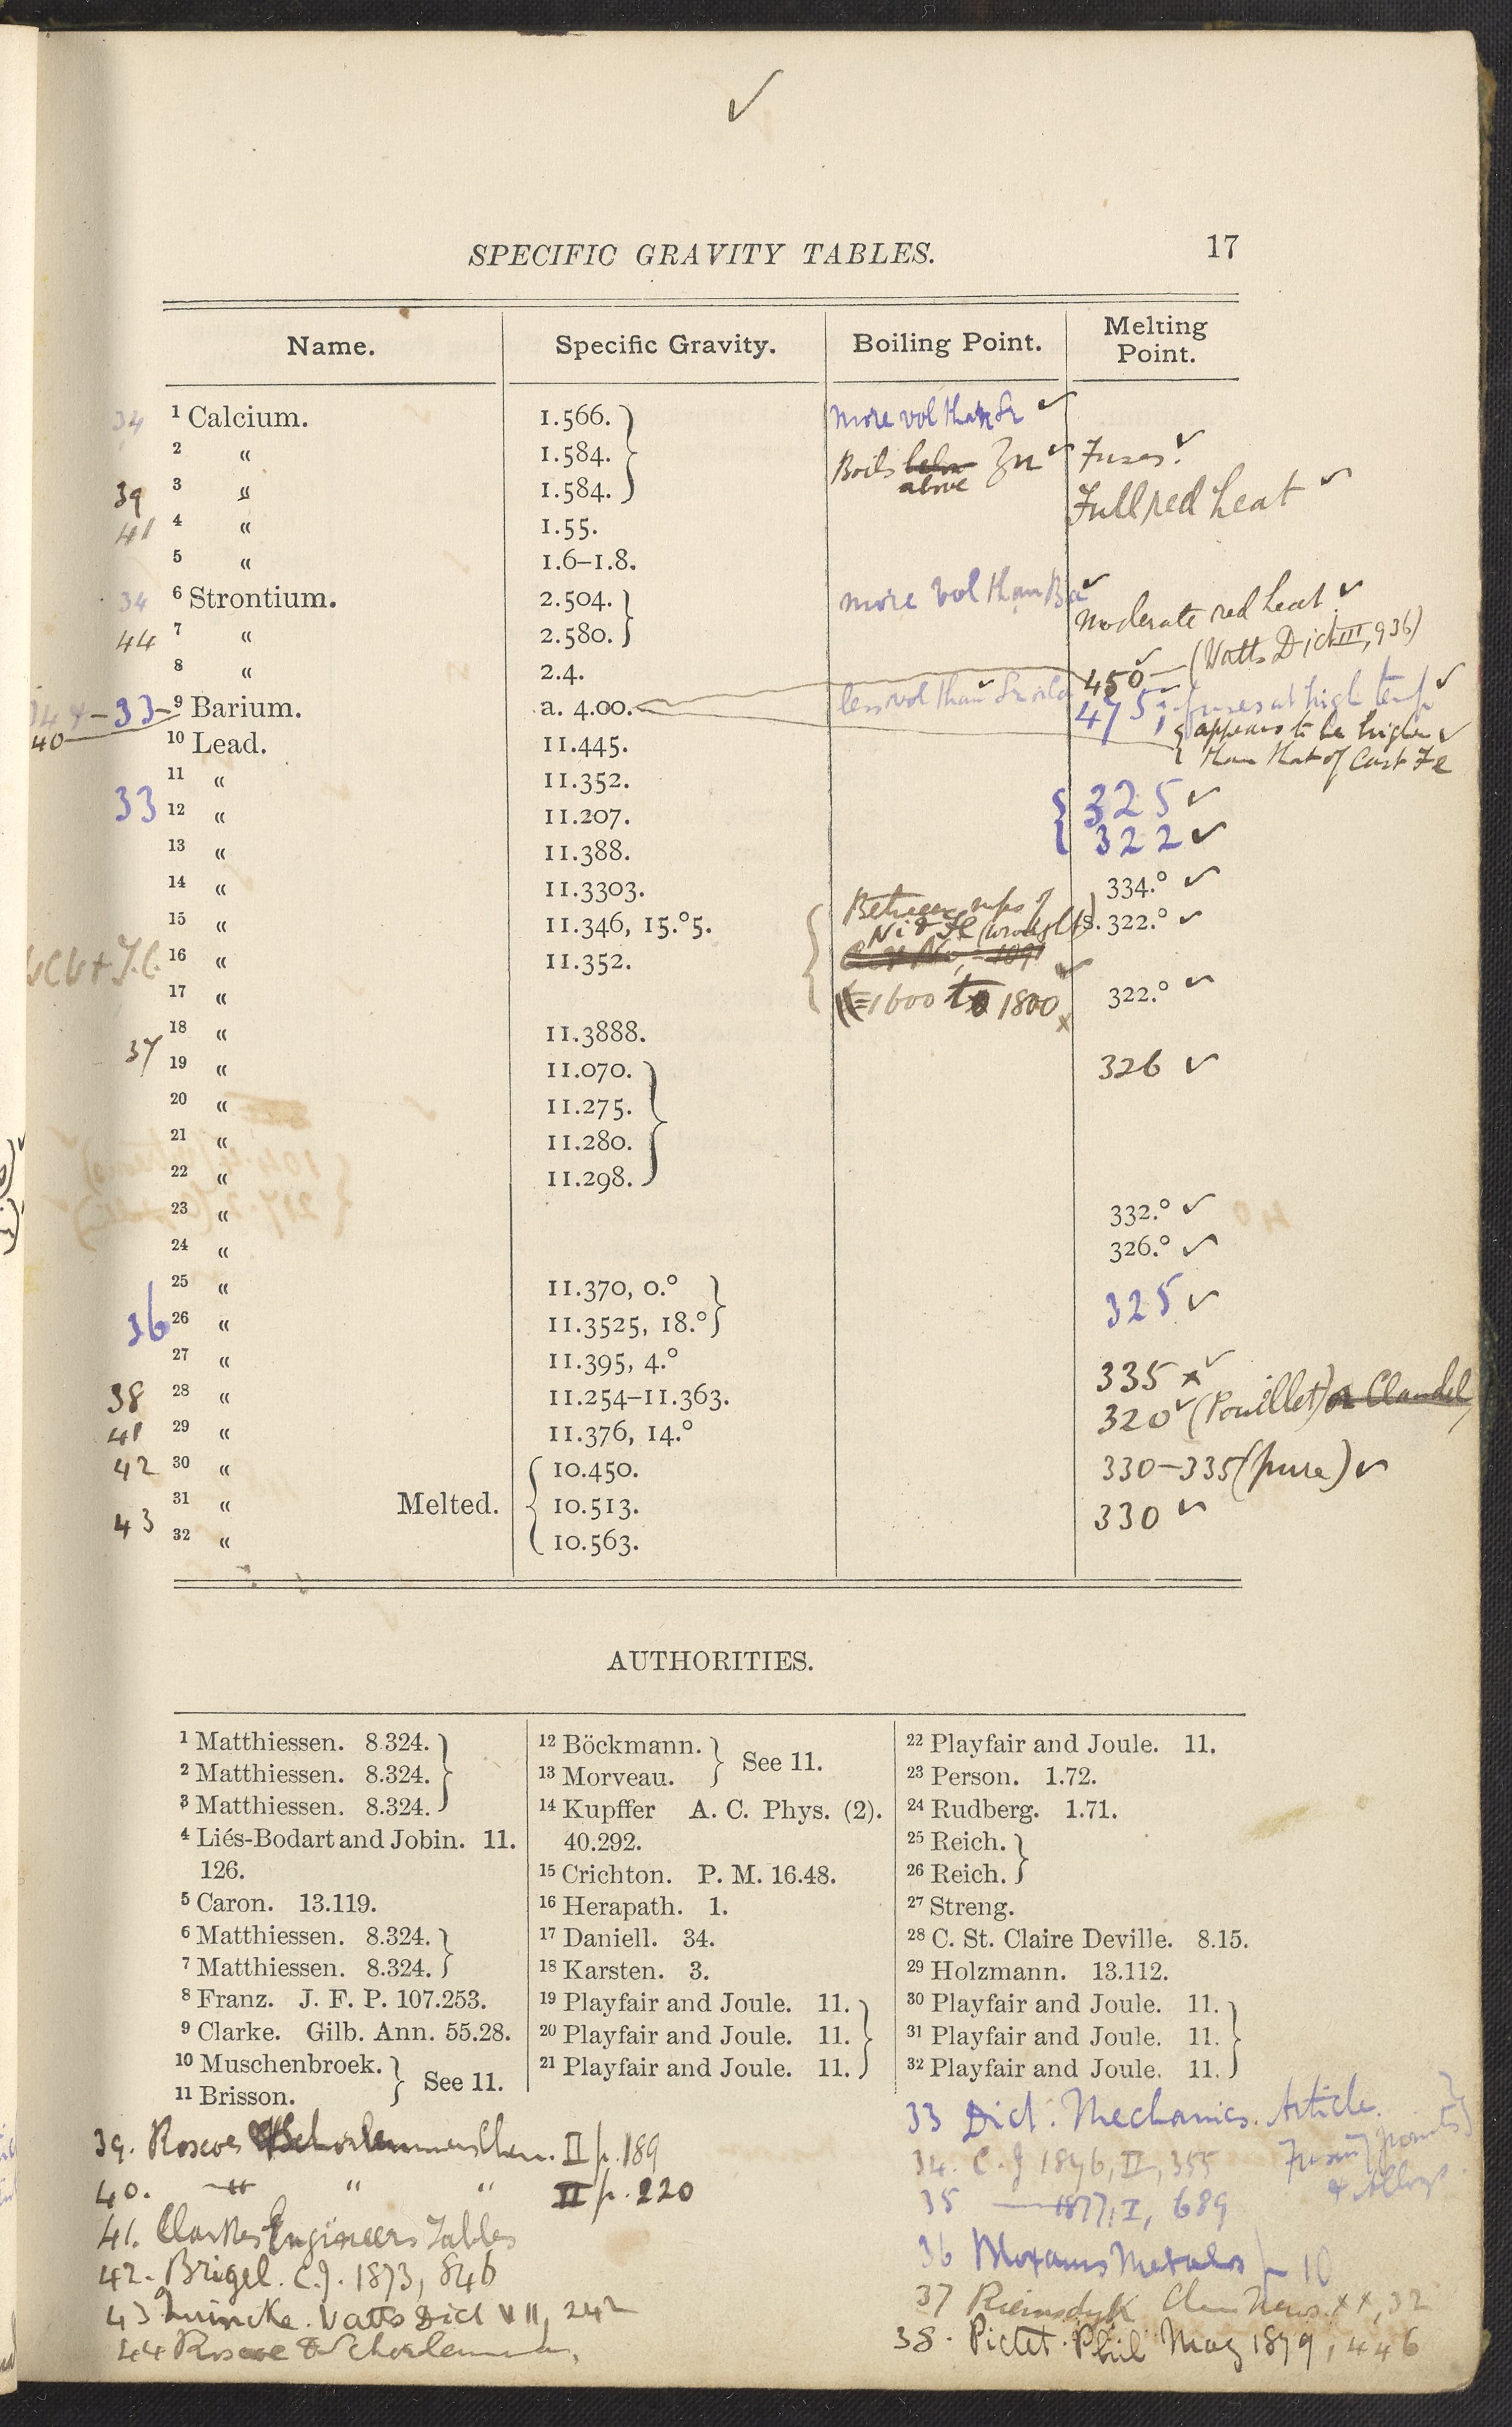 ✓
SPECIFIC GRAVITY TABLES. 17
Name. Specific Gravity. Boiling Point. Melting Point.
34 1 Calcium. 1.566. more vol than Sr ✓
2 " 1.584. Boils below above Zn ✓ Fuses. ✓
39 3 " 1.584. Full red heat ✓
41 4 " 1.55.
5 " 1.6–1.8.
34 6 Strontium. 2.504. more vol than Ba ✓ Moderate red heat ✓
44 7 " 2.580. (Watts Dict III, 936)
8 " 2.4. 450 ✓
34 44–33– 9 Barium. a. 4.00. less vol than Sr 475; fuses at high temp ✓
40 10 Lead. 11.445. appears to be higher ✓
than that of Cast Fe
11 " 11.352. 325 ✓
33 12 " 11.207. 322 ✓
13 " 11.388.
14 " 11.3303. 334.° ✓
15 " 11.346, 15.°5. Between mps of Ni & Fe (wrought) s. 322.° ✓
16 " 11.352.
17 " 1600 to 1800 x 322.° ✓
18 " 11.3888.
37 19 " 11.070. 326 ✓
20 " 11.275.
21 " 11.280.
22 " 11.298.
23 " 332.° ✓
24 " 326.° ✓
25 " 11.370, 0.° 325 ✓
36 26 " 11.3525, 18.°
27 " 11.395, 4.° 335 x ✓
38 28 " 11.254–11.363. 320 ✓ (Pouillet) or Claudel
41 29 " 11.376, 14.°
42 30 " 10.450. 330–335 (pure) ✓
31 " Melted. 10.513. 330 ✓
43 32 " 10.563.
AUTHORITIES.
1 Matthiessen. 8.324.
2 Matthiessen. 8.324.
3 Matthiessen. 8.324.
4 Liés-Bodart and Jobin. 11.
126.
5 Caron. 13.119.
6 Matthiessen. 8.324.
7 Matthiessen. 8.324.
8 Franz. J. F. P. 107.253.
9 Clarke. Gilb. Ann. 55.28.
10 Muschenbroek. See 11.
11 Brisson.
12 Böckmann. See 11.
13 Morveau.
14 Kupffer A. C. Phys. (2).
40.292.
15 Crichton. P. M. 16.48.
16 Herapath. 1.
17 Daniell. 34.
18 Karsten. 3.
19 Playfair and Joule. 11.
20 Playfair and Joule. 11.
21 Playfair and Joule. 11.
22 Playfair and Joule. 11.
23 Person. 1.72.
24 Rudberg. 1.71.
25 Reich.
26 Reich.
27 Streng.
28 C. St. Claire Deville. 8.15.
29 Holzmann. 13.112.
30 Playfair and Joule. 11.
31 Playfair and Joule. 11.
32 Playfair and Joule. 11.
39. Roscoe & Schorlemmers Chem. II p. 189
40. " " " II p. 220
41. Clarkes Engineers Tables
42. Brigel. C.J. 1873, 846
43 Quincke. Watts Dict VII, 242
44 Roscoe & Schorlemmer.
33 Dict. Mechanics. Article.
Fusing points
& Alloys
34. C.J 1876, II, 355
35 — 1877, I, 689
36 Bloxams Metals p 10
37 Riemsdyk Chem News. XX, 32
38. Pictet. Phil Mag 1879, 446